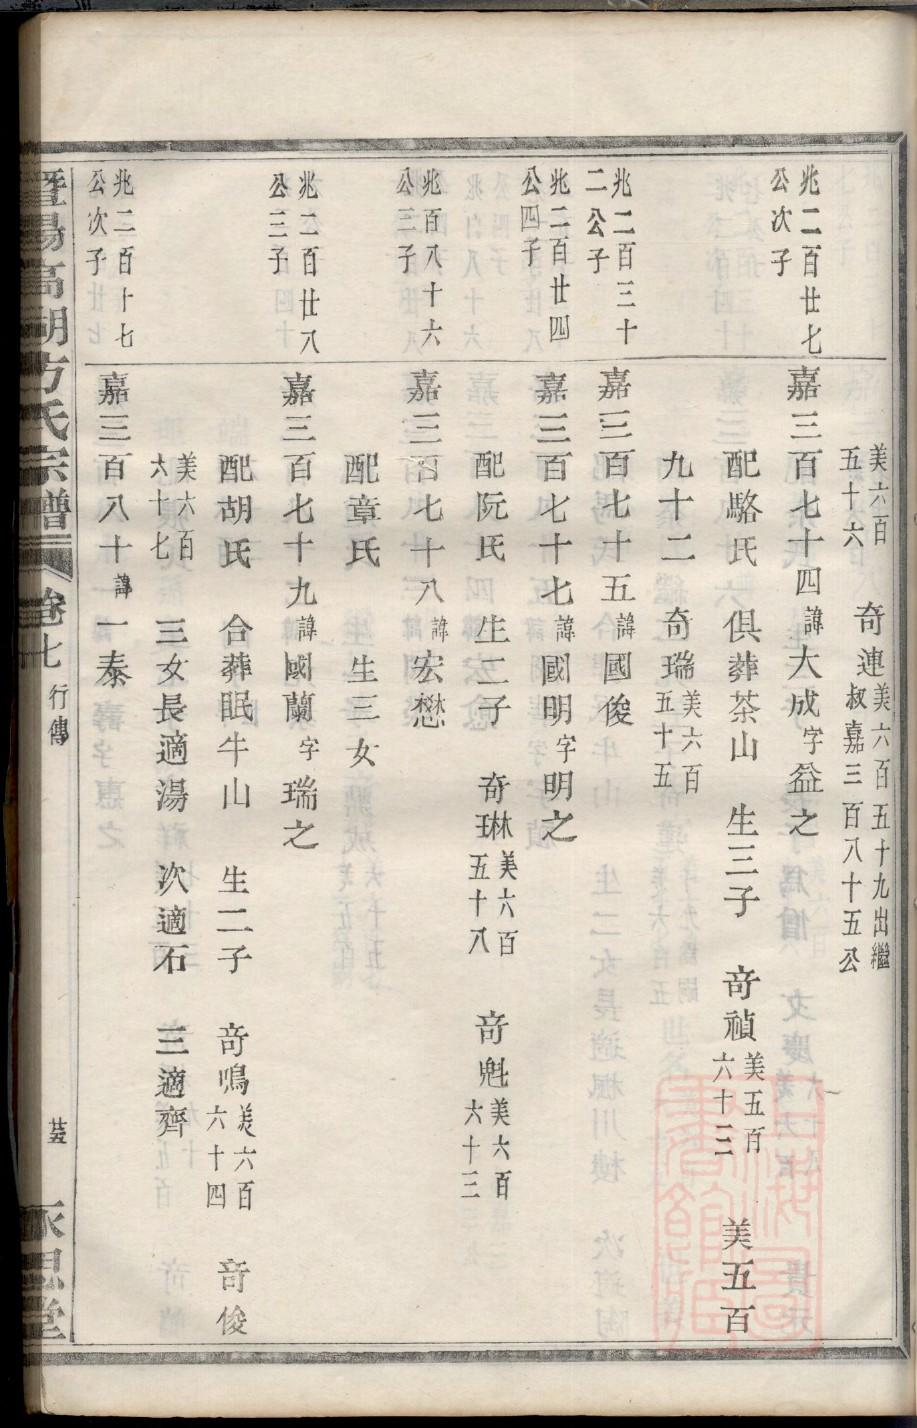 美六百五十六　奇連美六百五十九出繼叔嘉三百八十五公
兆二百廿七公次子
嘉三百七十四諱大成字益之
配駱氏　俱葬茶山　生三子　奇禎美五百六十三　美五百
九十二　奇瑞美六百五十五
兆二百三十二公子
嘉三百七十五諱國俊
兆二百廿四公四子
嘉三百七十七諱國明字明之
配阮氏　生二子　奇琳美六百五十八　奇魁美六百六十三
兆百八十六公三子
嘉三百七十八諱宏懋
配章氏　生三女
兆二百廿八公三子
嘉三百七十九諱國蘭字瑞之
配胡氏　合葬眠牛山　生二子　奇鳴美六百六十四　奇俊
美六百六十七　三女長適湯　次適石　三適齊
兆二百十七公次子
嘉三百八十諱一泰
暨陽高湖方氏宗譜　卷七　行傳　永思堂